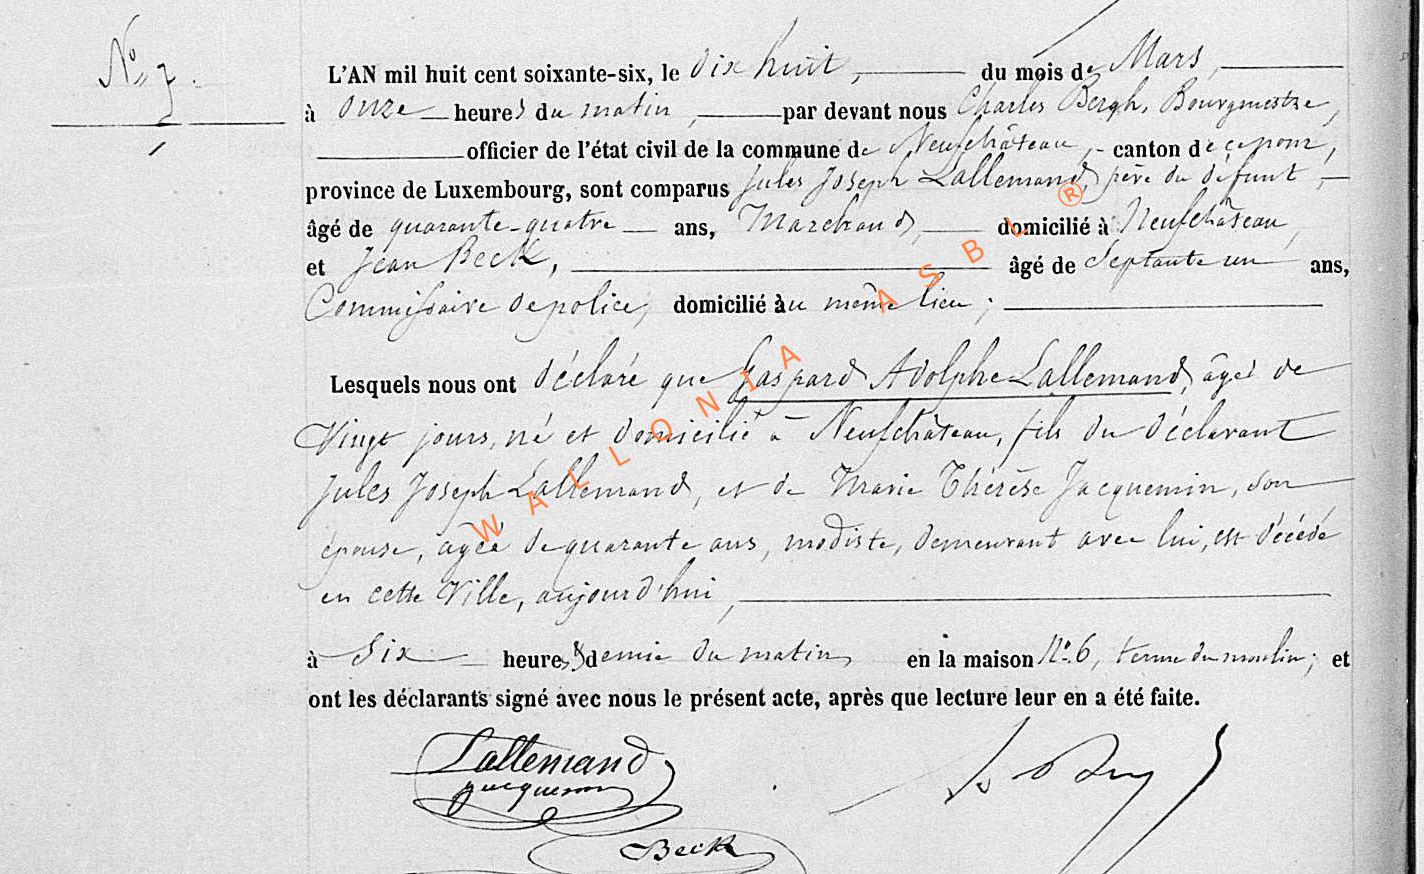 N° 7.
L'AN mil huit cent soixante-six, le dix huit, du mois de Mars,
à onze heures du matin, par devant nous Charles Bergh, Bourgmestre,
officier de l'état civil de la commune de Neufchâteau, canton de ce nom,
province de Luxembourg, sont comparus Jules Joseph Lallemand, père du défunt,
âgé de quarante-quatre ans, Marchand, domicilié à Neufchâteau,
et Jean Beck, âgé de Septante un ans,
Commissaire de police, domicilié au même lieu;
Lesquels nous ont déclaré que Gaspard Adolphe Lallemand, âgé de
Vingt jours, né et domicilié à Neufchâteau, fils du déclarant
Jules Joseph Lallemand, et de Marie Thérèse Jacquemin, son
épouse, agée de quarante ans, modiste, demeurant avec lui, est décédé
en cette Ville, aujourd'hui,
à Six heures & demie du matin, en la maison N° 6, terme du moulin; et
ont les déclarants signé avec nous le présent acte, après que lecture leur en a été faite.
Lallemand
Beck
WALLONIA ASBL ®